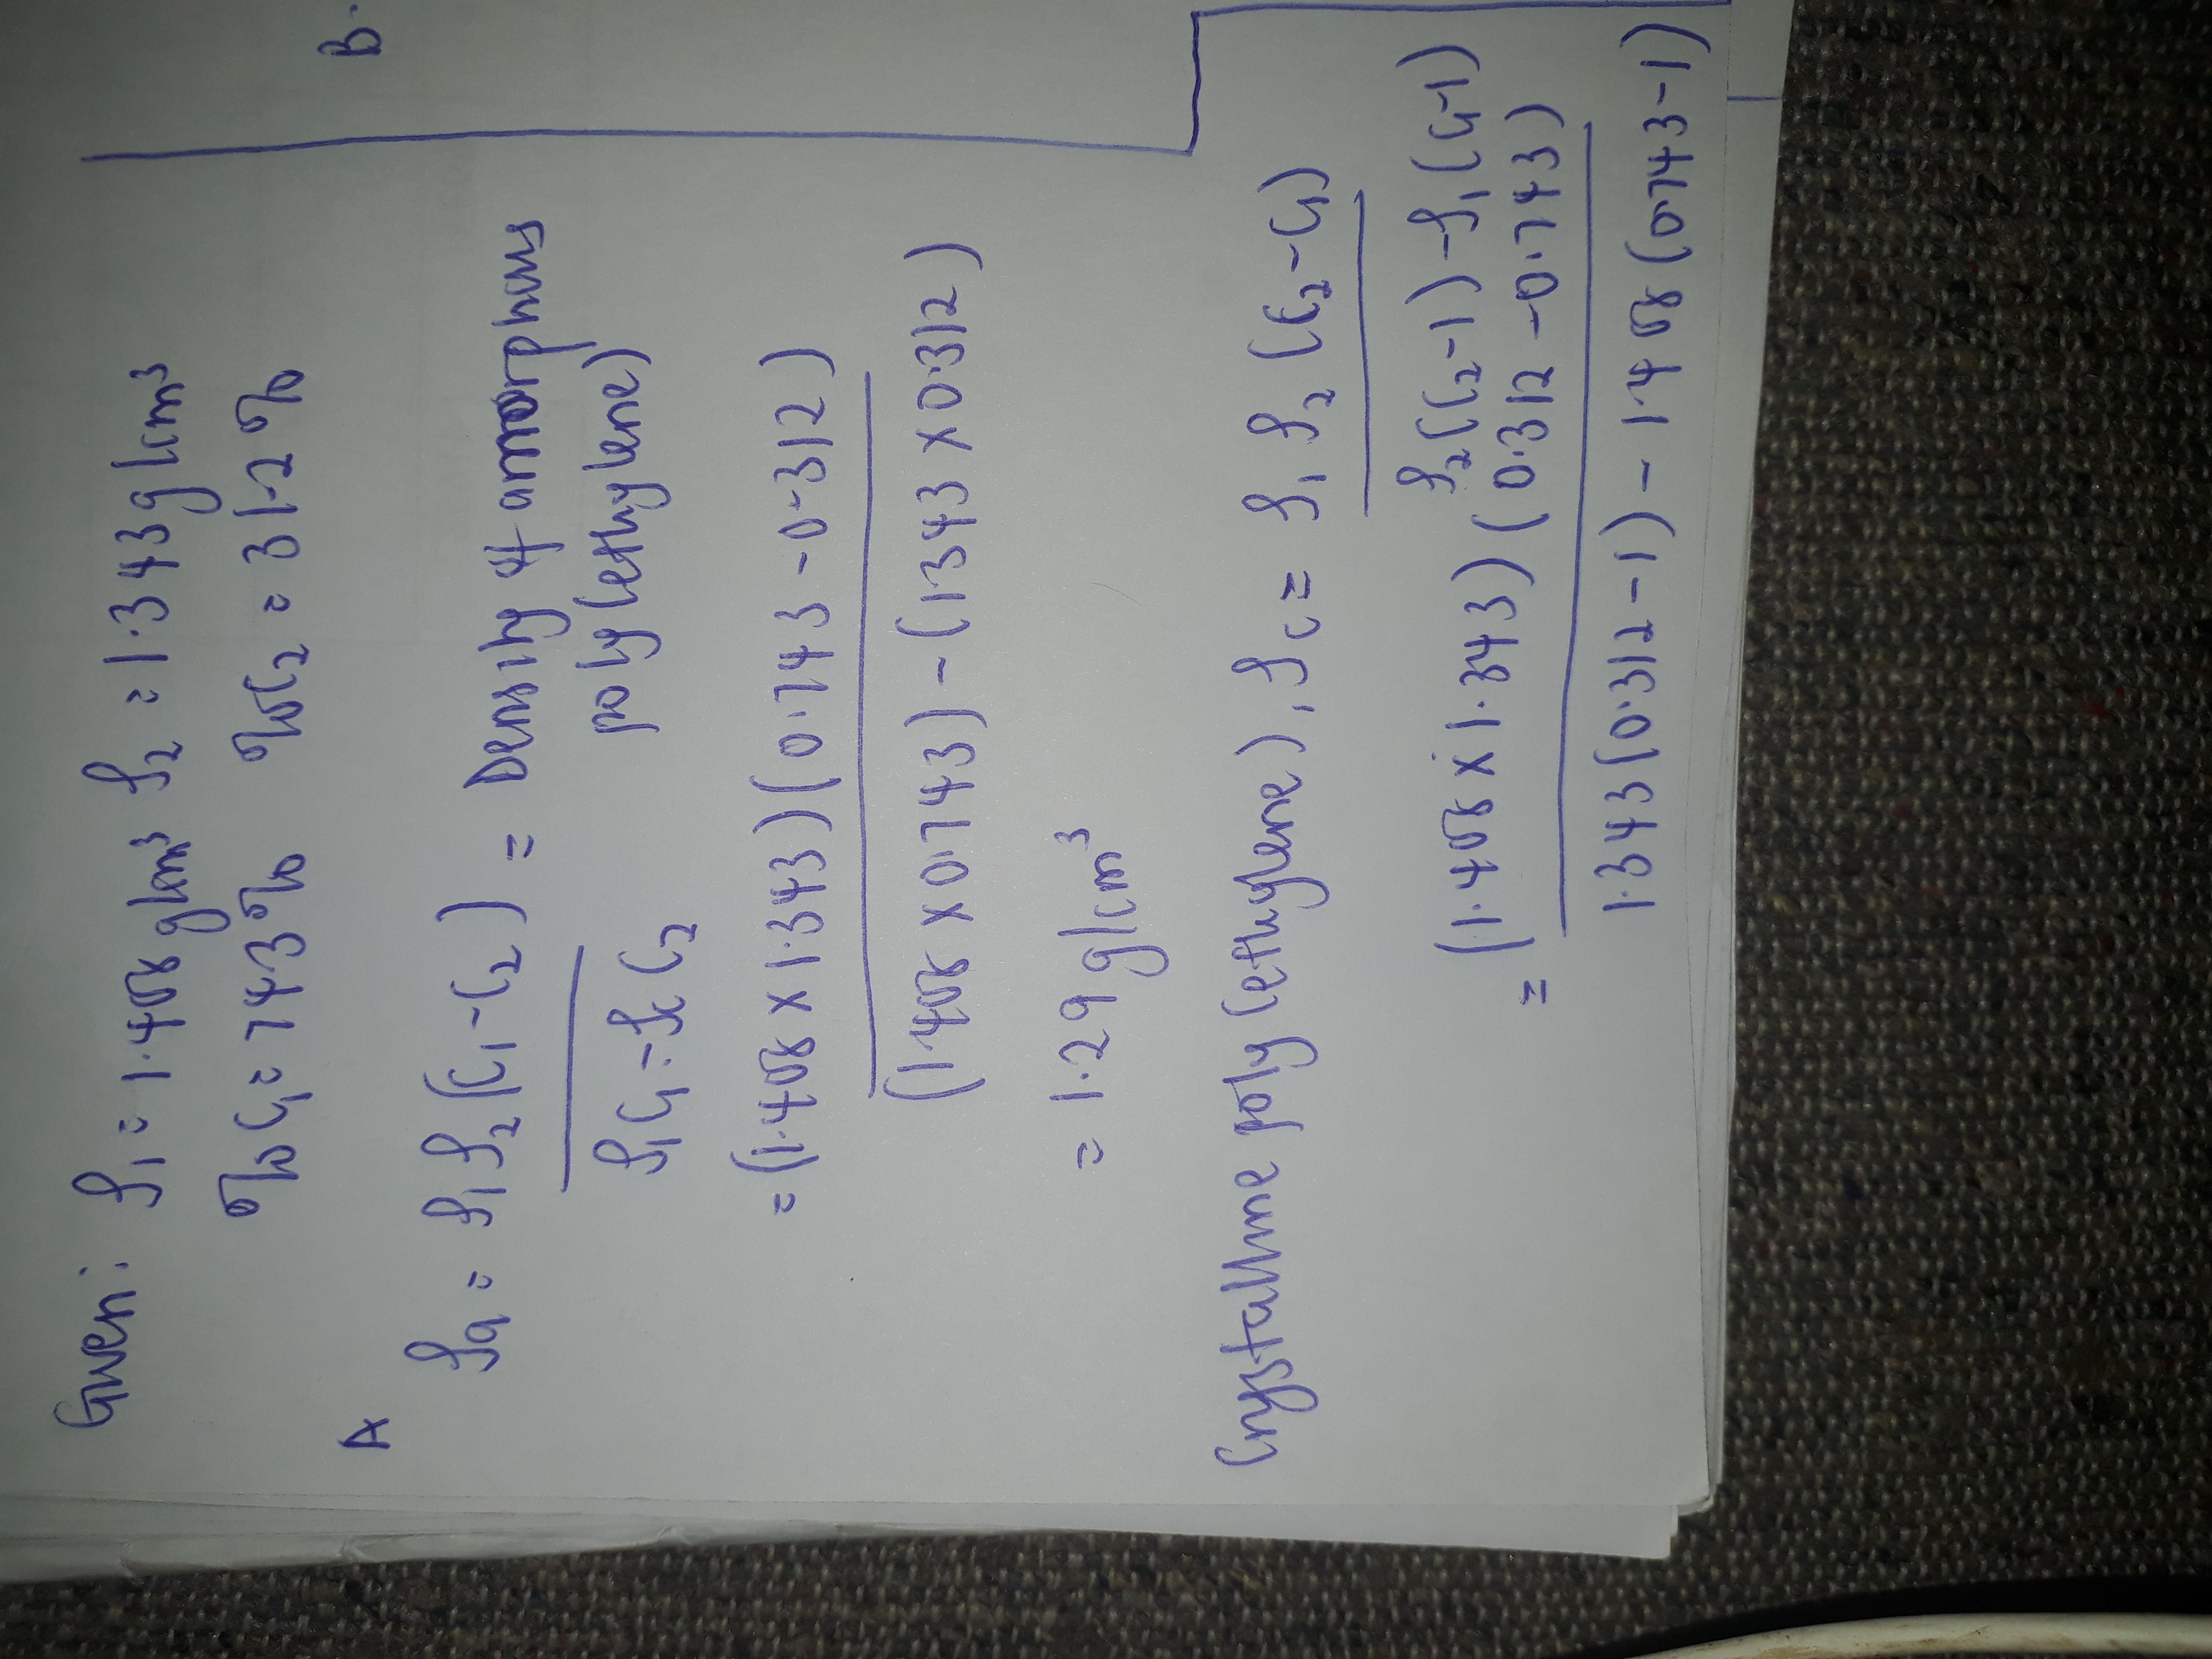 Given: ρ₁ = 1.408 g/cm³ ρ₂ = 1.343 g/cm³
%C₁ = 74.3% %C₂ = 31.2%
A
B.
ρa = ρ₁ρ₂(C₁-C₂) = Density of amorphous
ρ₁C₁ - ρ₂C₂ poly(ethylene)
= (1.408 x 1.343)(0.743 - 0.312)
(1.408 x 0.743) - (1.343 x 0.312)
= 1.29 g/cm³
Crystalline poly(ethylene), ρc = ρ₁ρ₂(C₂-C₁)
ρ₂(C₂-1) - ρ₁(C₁-1)
= (1.408 x 1.343)(0.312 - 0.743)
1.343(0.312-1) - 1.408(0.743-1)